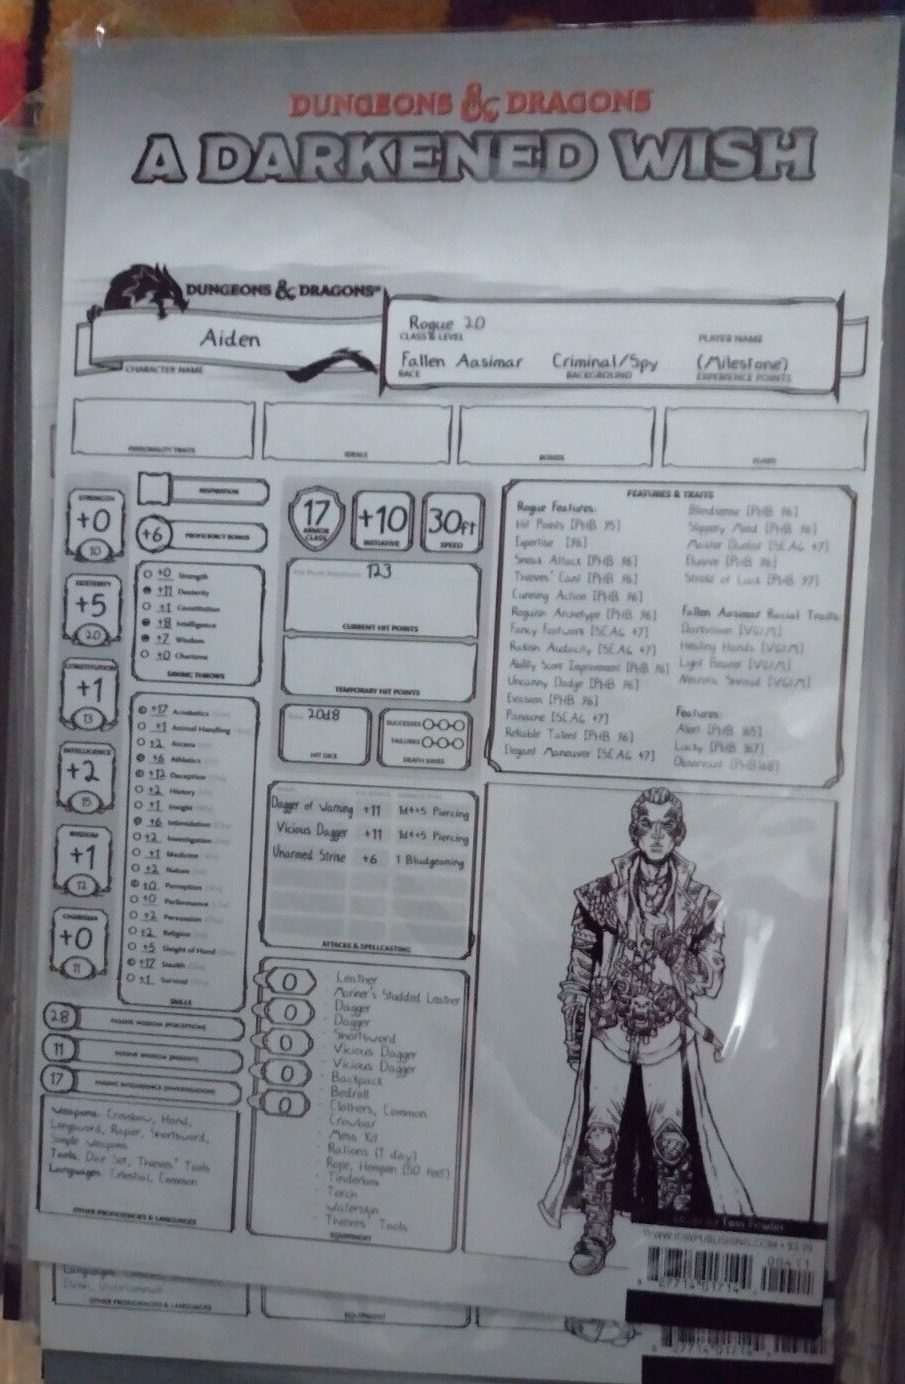 DUNGEONS & DRAGONS
A DARKENED WISH
DUNGEONS & DRAGONS®
Aiden
CHARACTER NAME
Rogue 20
CLASS & LEVEL
PLAYER NAME
Fallen Aasimar
RACE
Criminal/Spy
BACKGROUND
(Milestone)
EXPERIENCE POINTS
PERSONALITY TRAITS
IDEALS
BONDS
FLAWS
STRENGTH
+0
10
DEXTERITY
+5
20
CONSTITUTION
+1
13
INTELLIGENCE
+2
15
WISDOM
+1
12
CHARISMA
+0
11
INSPIRATION
+6 PROFICIENCY BONUS
+0 Strength
+11 Dexterity
+1 Constitution
+8 Intelligence
+7 Wisdom
+0 Charisma
SAVING THROWS
+17 Acrobatics
+1 Animal Handling
+2 Arcana
+6 Athletics
+12 Deception
+2 History
+1 Insight
+6 Intimidation
+2 Investigation
+1 Medicine
+2 Nature
Perception
+0 Performance
+2 Persuasion
+2 Religion
+5 Sleight of Hand
+17 Stealth
+1 Survival
SKILLS
28 PASSIVE WISDOM (PERCEPTION)
11 PASSIVE WISDOM (INSIGHT)
17 PASSIVE INTELLIGENCE (INVESTIGATION)
Weapons: Crossbow, Hand,
Longsword, Rapier, Shortsword,
Simple Weapons
Tools: Dice Set, Thieves' Tools
Languages: Celestial, Common
OTHER PROFICIENCIES & LANGUAGES
17
ARMOR
CLASS
+10
INITIATIVE
30ft
SPEED
Hit Point Maximum 123
CURRENT HIT POINTS
TEMPORARY HIT POINTS
20d8
HIT DICE
SUCCESSES
FAILURES
DEATH SAVES
Dagger of Warning +11 1d4+5 Piercing
Vicious Dagger +11 1d4+5 Piercing
Unarmed Strike +6 1 Bludgeoning
ATTACKS & SPELLCASTING
0
0
0
0
0
Leather
Mariner's Studded Leather
Dagger
Dagger
Shortsword
Vicious Dagger
Vicious Dagger
Backpack
Bedroll
Clothes, Common
Crowbar
Mess Kit
Rations (1 day)
Rope, Hempen (50 feet)
Tinderbox
Torch
Waterskin
Thieves' Tools
EQUIPMENT
FEATURES & TRAITS
Rogue Features:
Hit Points [PHB 95]
Expertise [96]
Sneak Attack [PHB 96]
Thieves' Cant [PHB 96]
Cunning Action [PHB 96]
Roguish Archetype [PHB 96]
Fancy Footwork [SCAG 47]
Rakish Audacity [SCAG 47]
Ability Score Improvement [PHB 96]
Uncanny Dodge [PHB 96]
Evasion [PHB 96]
Panache [SCAG 47]
Reliable Talent [PHB 96]
Elegant Maneuver [SCAG 47]
Blindsense [PHB 96]
Slippery Mind [PHB 96]
Master Duelist [SCAG 47]
Elusive [PHB 96]
Stroke of Luck [PHB 97]
Fallen Aasimar Racial Traits:
Darkvision [VGtM]
Healing Hands [VGtM]
Light Bearer [VGtM]
Necrotic Shroud [VGtM]
Features:
Alert [PHB 165]
Lucky [PHB 167]
Observant [PHB 168]
Cover by Tess Fowler
WWW.IDWPUBLISHING.COM • $3.99
00411
27714 01714
Languages:
OTHER PROFICIENCIES & LANGUAGES
EQUIPMENT
27714 01714